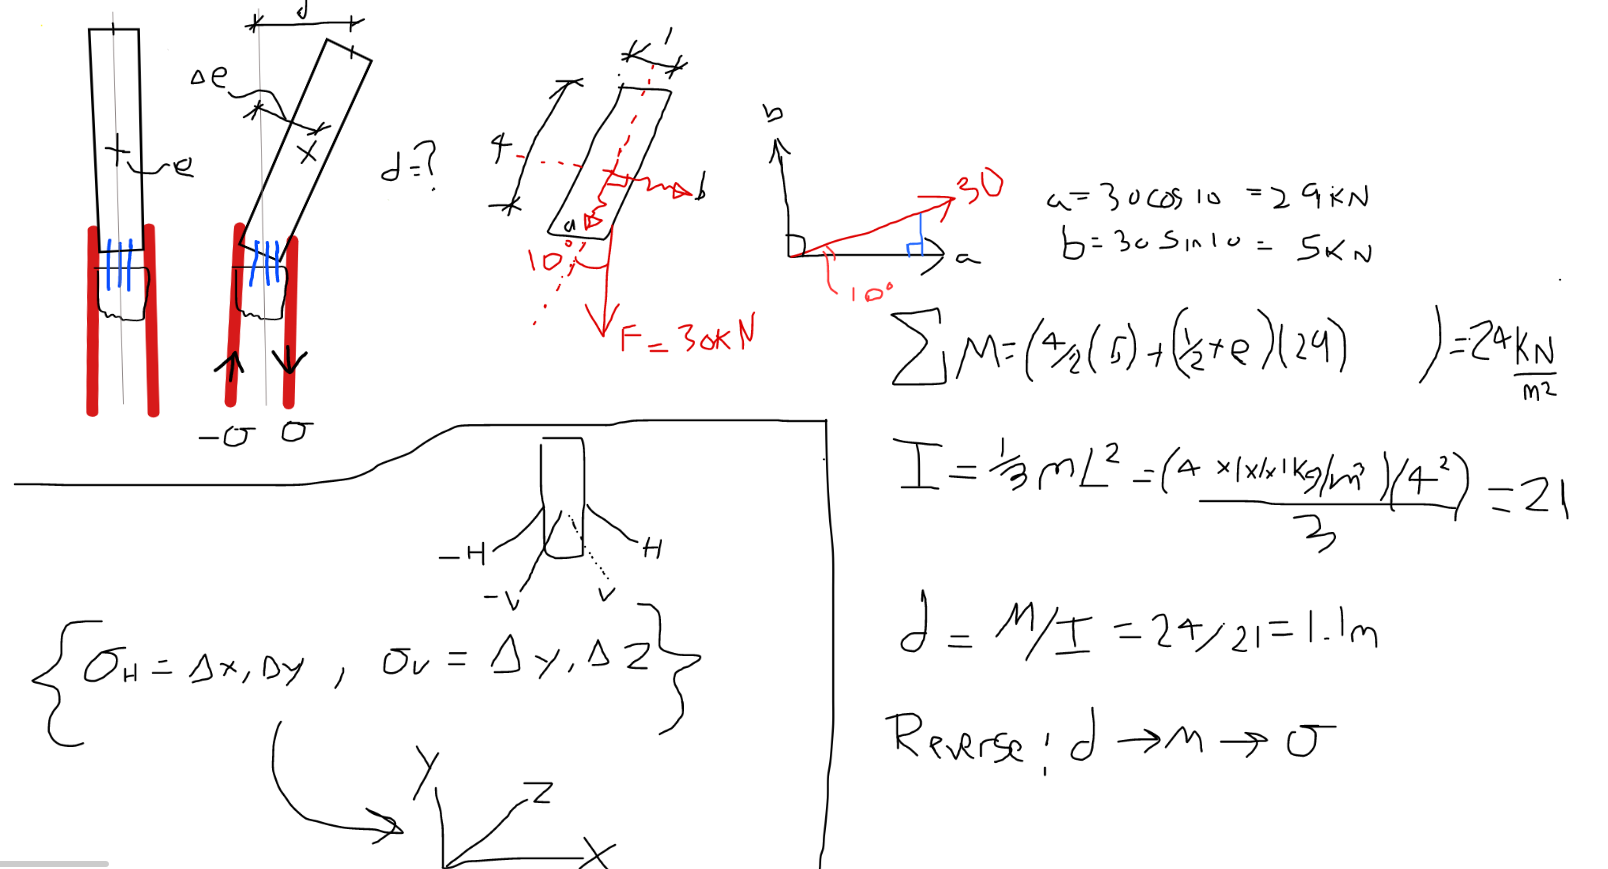 d
Δe
e
d=?
-σ σ
1
4
a
b
10°
F = 30KN
b
30
a
10°
a = 30 cos 10 = 29 KN
b = 30 Sin 10 = 5 KN
∑ M = (4/2 (5) + (1/2 + e)(29) ) = 24 KN/m2
I = 1/3 m L² = (4 x1x1x1Kg/m³)(4²)/3 = 21
d = M/I = 24/21 = 1.1m
Reverse: d → M → σ
-H H
-V V
{ σH = Δx, Δy , σV = Δy, Δz }
Y
Z
X